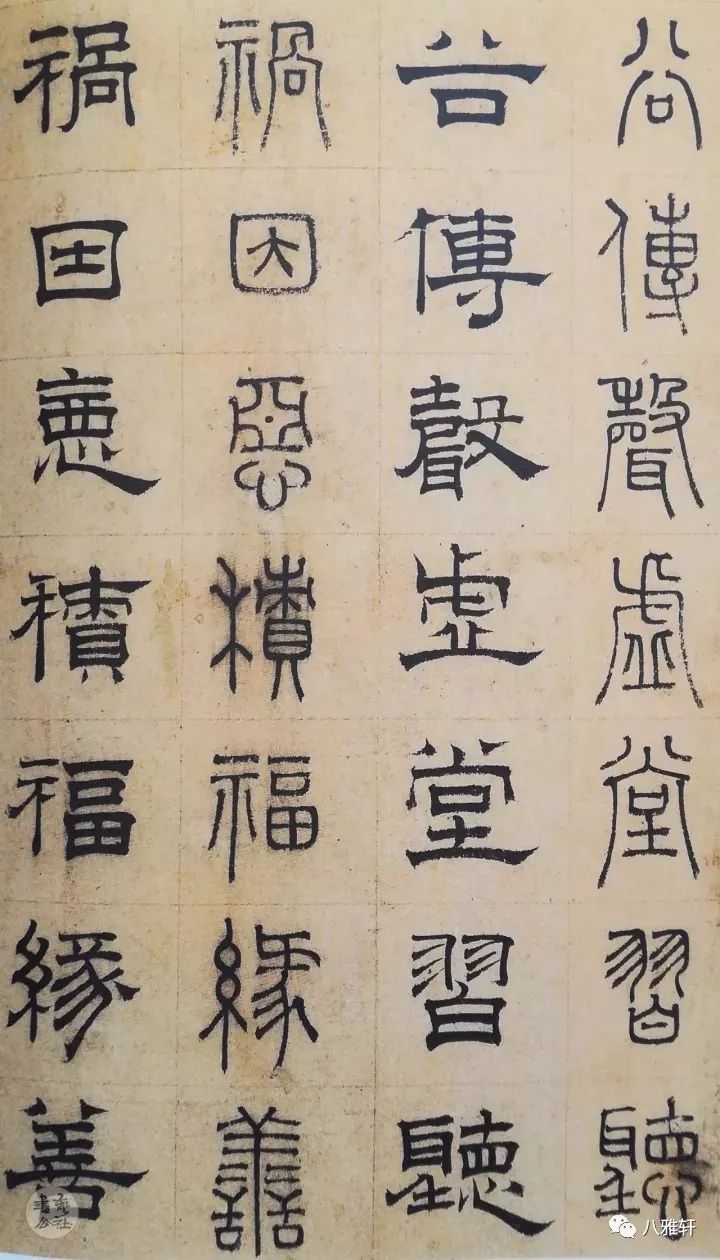 谷傳聲虛堂習聽
谷傳聲虛堂習聽
禍因惡積福緣善
禍因惡積福緣善
八雅轩